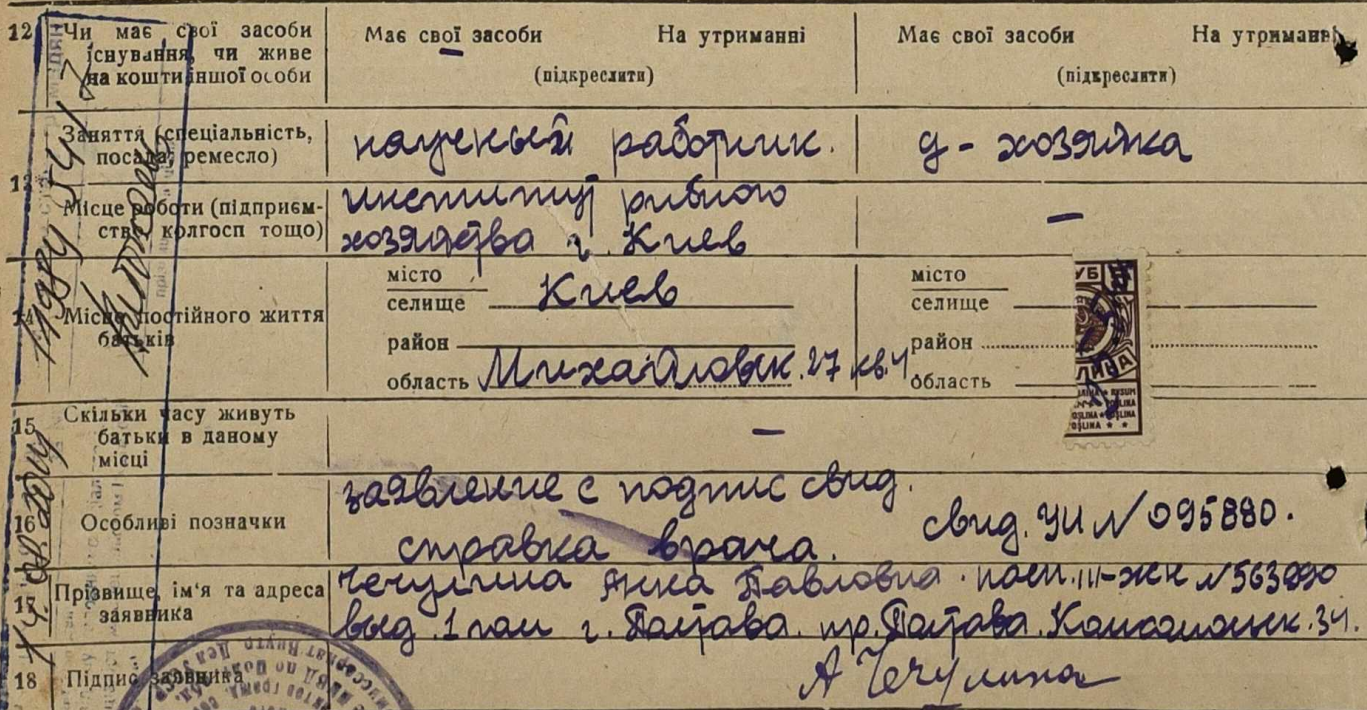 12 Чи має свої засоби існування, чи живе на кошти іншої особи
Має свої засоби На утриманні
(підкреслити)
Має свої засоби На утриманні
(підкреслити)
13
Заняття (спеціальність, посада, ремесло)
научный работник.
д-хозяйка
Місце роботи (підприємство, колгосп тощо)
институт рибного
хозяйства г. Киев
—
14 Місце постійного життя батьків
місто
селище Киев
район
область Михайловск. 27 кв. 4
місто
селище
район
область
15 Скільки часу живуть батьки в даному місці
—
16 Особливі позначки
заявление с подпис свид.
справка врача.
свид. УИ № 095880.
17 Прізвище, ім'я та адреса заявника
Чечулина Анна Павловна. пасп. III-жн №
выд. 1 г. Полтава. пр. Полтава. Комсомольск. 34.
18 Підпис заявника
А Чечулина